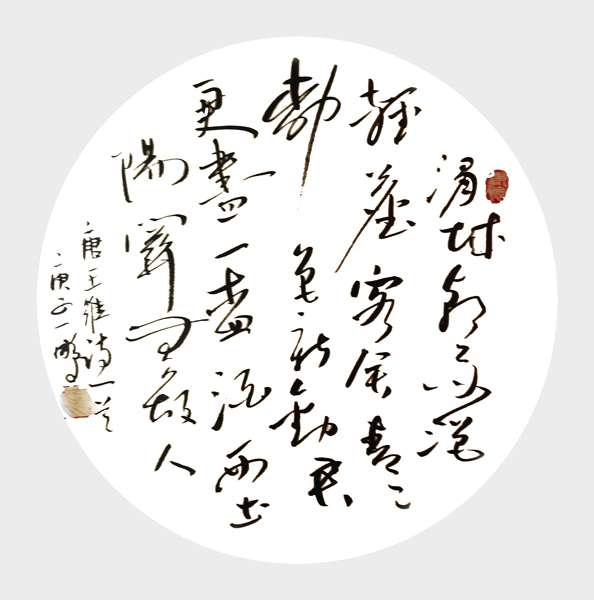 渭城朝雨浥
輕塵客舍青々
柳色新勸君
更盡一盃酒西出
陽關無故人
唐王維詩一首
庚子一鵬